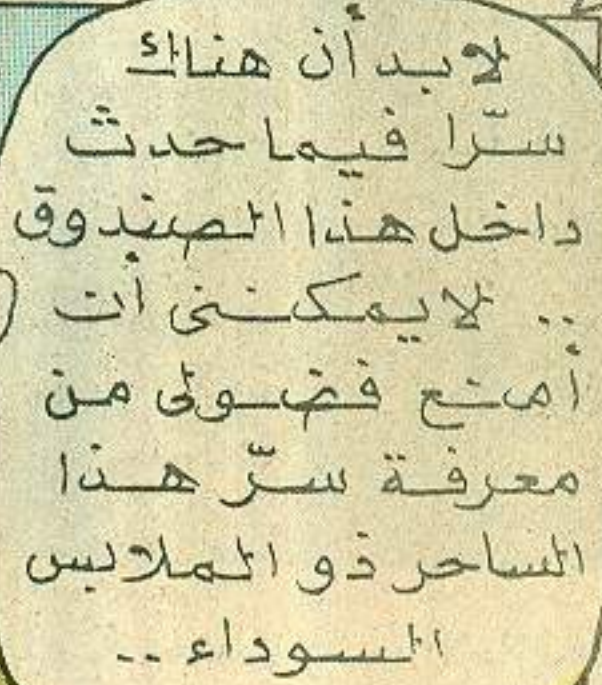 لابد أن هناك
سرّا فيما حدث
داخل هذا الصندوق
.. لا يمكننى أن
أمنع فضولى من
معرفة سرّ هذا
الساحر ذو الملابس
السوداء ..